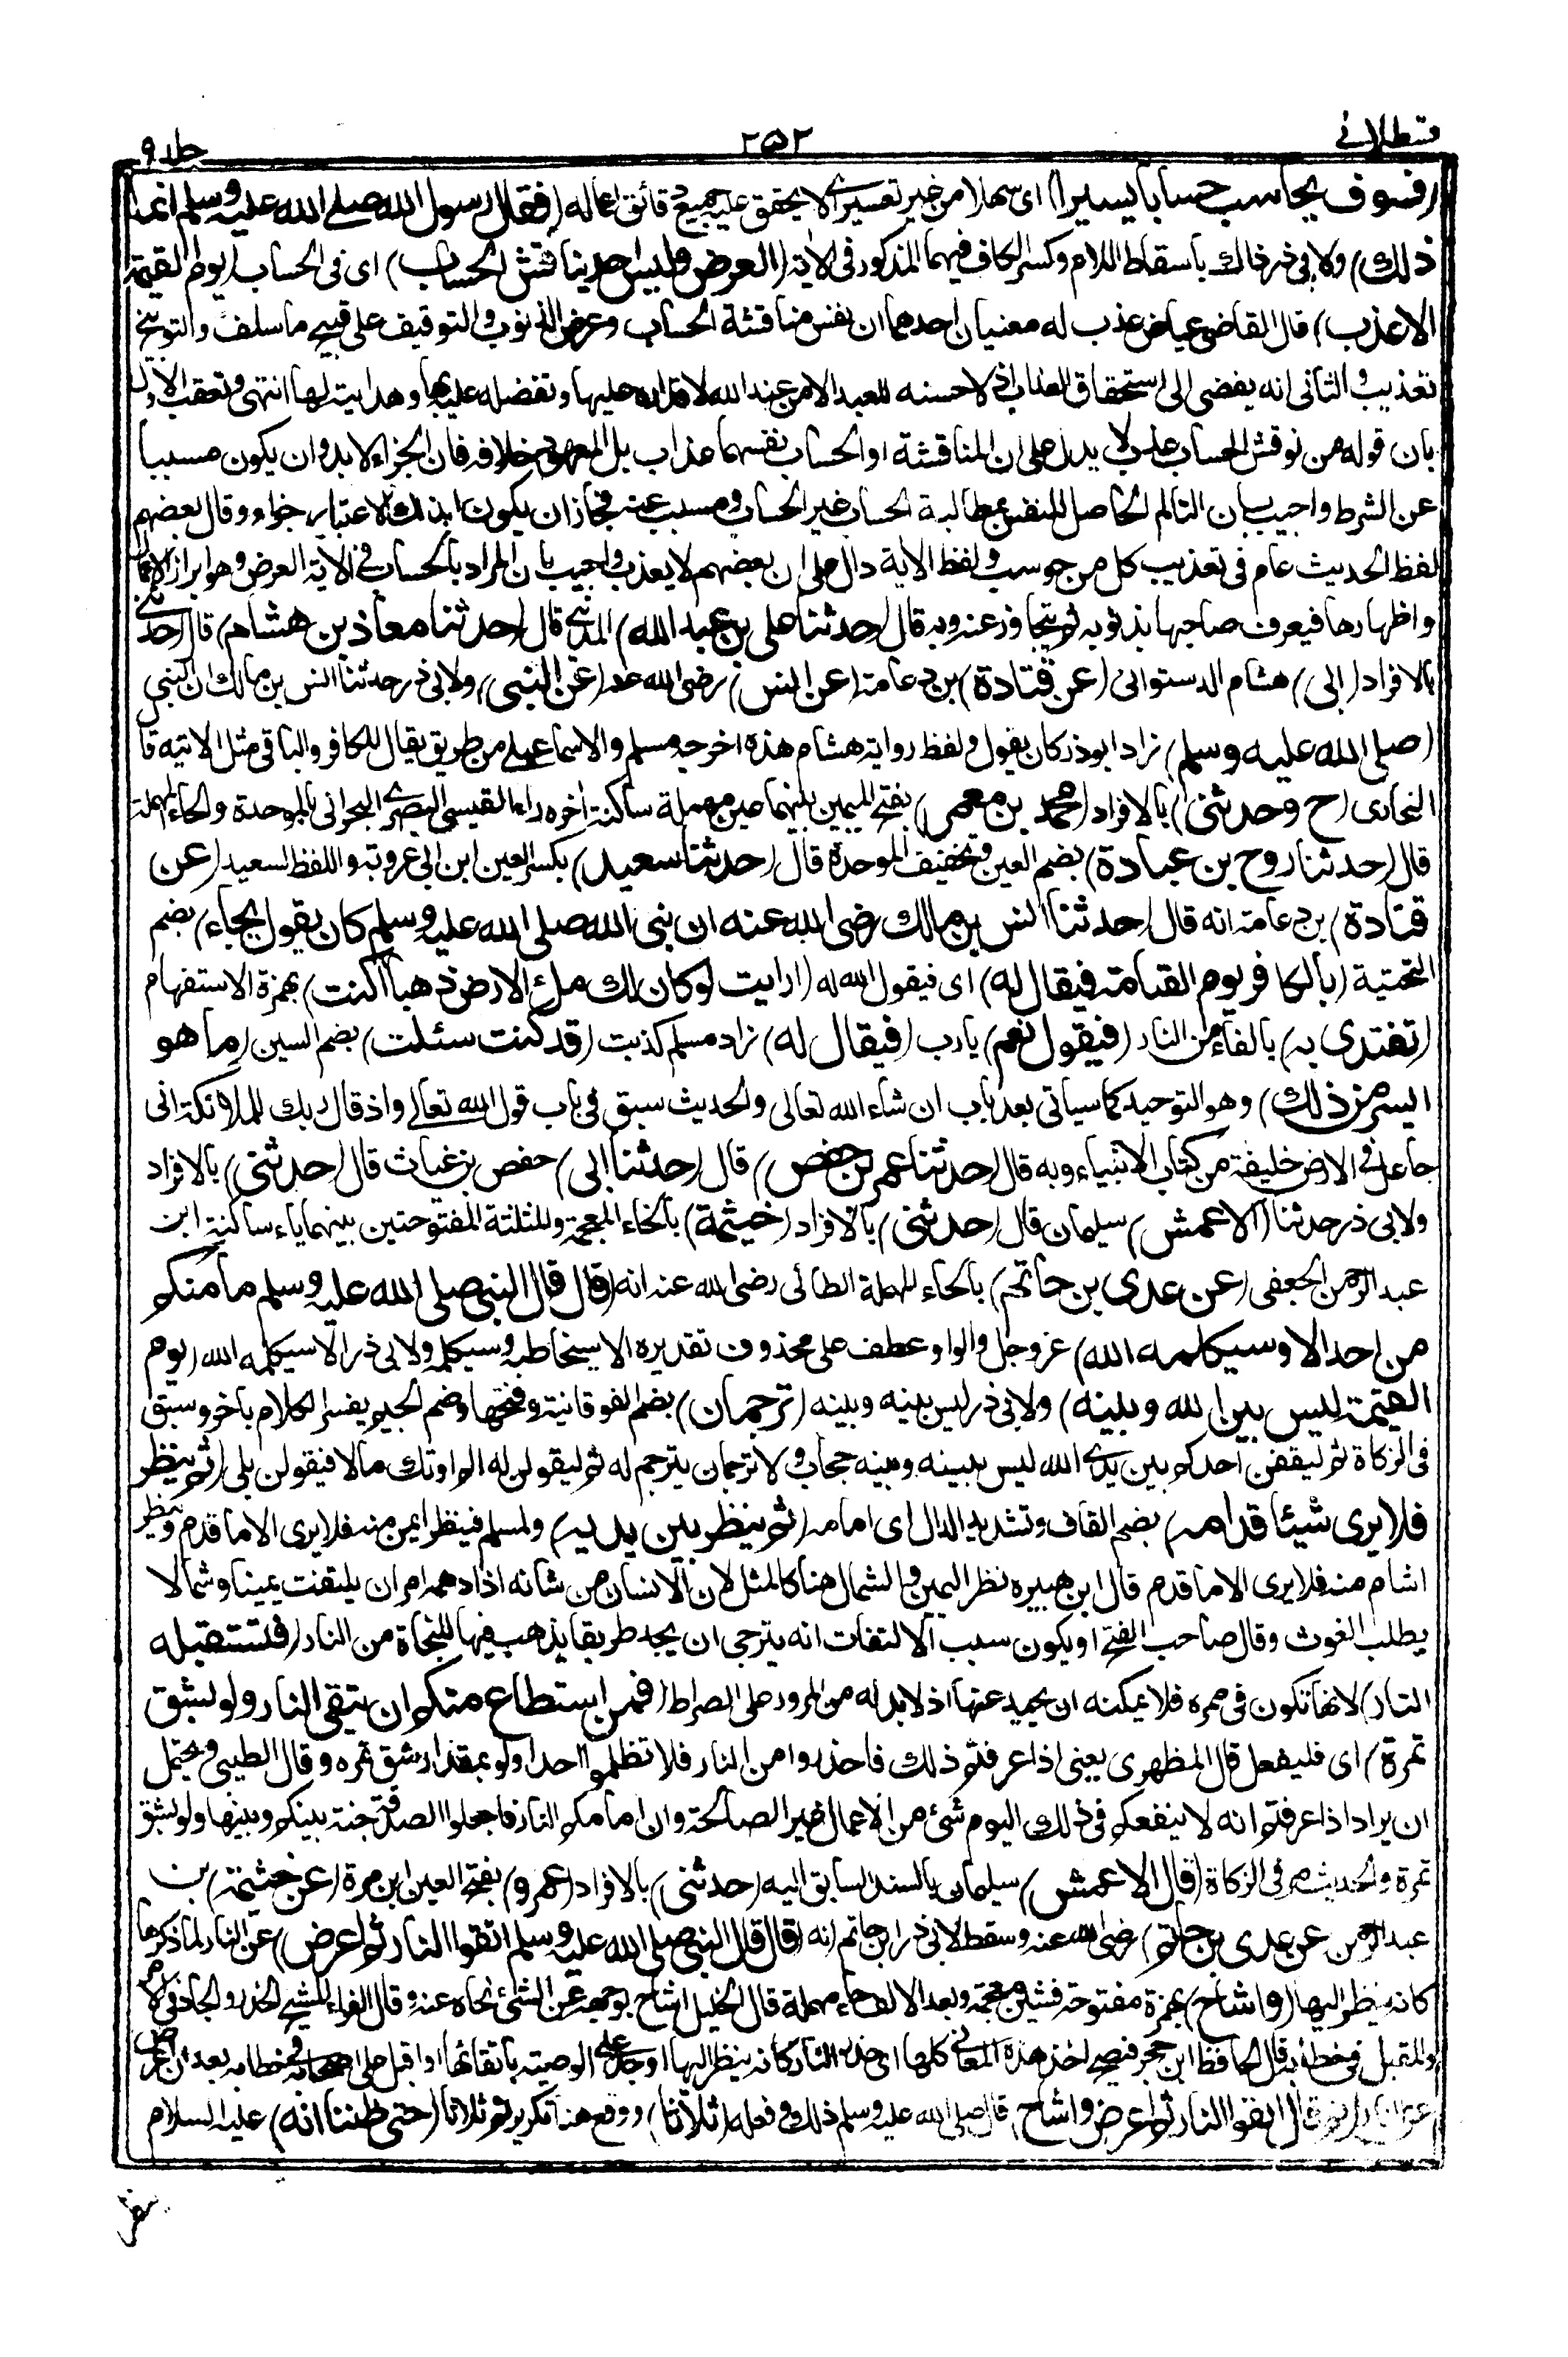 قسطلانے
٢٥٢
جلد ٩
(فسوف يحاسب حسابا يسيرا) اى سهلا من غير تعسير اى لا يحقق عليه جميع دقائق اعماله (فقال رسول الله صلے الله عليه وسلم انما
ذلك) ولابى ذر ذاك باسقاط اللام وكسر الكاف فيهما المذكور فى الاية (العرض وليس احد يناقش الحساب) اى فى الحساب (يوم القيمة
الا عذب) قال القاضى عياض عذب له معنيان احدهما ان نفس مناقشة الحساب وعرض الذنوب والتوقيف على قبيح ما سلف والتوبيخ
تعذيب والثانى انه يفضى الى استحقاق العذاب اذ لا حسنه للعبد الا من عند الله لاقداره عليها وتفضله عليه بها وهدايته لها انتهى وتعقب الاول
بان قوله من نوقش الحساب عذب لا يدل على ان المناقشة او الحساب نفسهما عذاب بل المعهود خلافه فان الجزاء لا بد وان يكون مسببا
عن الشرط واجيب بان التالم الحاصل للنفس بمطالبة الحساب غير الحساب ومسبب عنه فجاز ان يكون بذلك الاعتبار جزاء وقال بعضهم
لفظ الحديث عام فى تعذيب كل من حوسب ولفظ الاية دال على ان بعضهم لا يعذب واجيب بان المراد بالحساب فى الاية العرض وهو ابراز الاعمال
واظهارها فيعرف صاحبها بذنوبه ثم يتجاوز عنه وبه قال (حدثنا على بن عبد الله) المدينے قال (حدثنا معاذ بن هشام) قال (حدثنے
بالافراد (ابى) هشام الدستوائى (عن قتادة) بن دعامة (عن انس) رضى الله عنه (عن النبى) ولابى ذر حدثنا انس بن مالك ان النبى
(صلى الله عليه وسلم) زاد ابوذر كان يقول ولفظ رواية هشام هذه اخرجه مسلم والاسماعيلے من طريق يقال للكافر والباقى مثل الاتيه قا
البخارى (ح وحدثنى) بالافراد (محمد بن معمر) بفتح الميمين بينهما عين مهملة ساكنة اخره راء القيسى البصرے البحرانى بالموحدة والحاء المهملة
قال (حدثنا روح بن عبادة) بضم العين وتخفيف الموحدة قال (حدثنا سعيد) بكسر العين ابن ابى عروبة واللفظ لسعيد (عن
قتادة) بن دعامة انه قال (حدثنا انس بن مالك رضى الله عنه ان نبى الله صلى الله عليه وسلم كان يقول يجاء) بضم
التحتية (بالكافر يوم القيامة فيقال له) اى فيقول الله له (ارايت لو كان لك ملء الارض ذهبا أكنت) بهمزة الاستفهام
(تفتدى به) بالفاء من النار (فيقول نعم) يارب (فيقال له) زاد مسلم كذبت (قد كنت سئلت) بضم السين (ما هو
ايسر من ذلك) وهو التوحيد كما سياتى بعد باب ان شاء الله تعالى والحديث سبق فى باب قول الله تعالے واذ قال ربك للملائكة انى
جاعل فى الارض خليفة من كتاب الانبياء وبه قال (حدثنا عمر بن حفص) قال (حدثنا ابى) حفص بن غياث قال (حدثنى) بالافراد
ولابى ذر حدثنا (الاعمش) سليمان قال (حدثنى) بالافراد (خيثمة) بالخاء المعجمة والمثلثة المفتوحتين بينهما ياء ساكنة ابن
عبد الرحمن الجعفى (عن عدى بن حاتم) بالحاء المهملة الطائى رضى الله عنه انه (قال قال النبى صلى الله عليه وسلم ما منكم
من احد الا وسيكلمه الله) عز وجل والواو عطف على محذوف تقديره الا سيخاطبه وسيكلمه ولابى ذر الا سيكلمه الله (يوم
القيمة ليس بين الله وبينه) ولابى ذر ليس بينه وبينه (ترجمان) بضم الفوقانية وفتحها وضم الجيم يفسر الكلام باخر وسبق
فى الزكاة ثم ليقفن احدكم بين يدے الله ليس بينه وبينه حجاب ولا ترجمان يترجم له ثم ليقولن له الم اوتك مالا فيقولن بلى (ثم ينظر
فلا يرى شيئا قدامه) بضم القاف وتشديد الدال اى امامه (ثم ينظر بين يديه) ولمسلم فينظر ايمن منه فلا يرى الا ما قدم وينظر
اشام منه فلا يرى الا ما قدم قال ابن هبيره نظر اليمين والشمال هنا كالمثل لان الانسان من شانه اذا دهمه امر ان يلتفت يمينا وشمالا
يطلب الغوث وقال صاحب الفتح او يكون سبب الالتفات انه يترجى ان يجد طريقا يذهب فيها للنجاة من النار (فتستقبله
النار) لانها تكون فى ممره فلا يمكنه ان يحيد عنها اذ لا بد له من المرور على الصراط (فمن استطاع منكم ان يتقى النار ولو بشق
تمرة) اى فليفعل قال المظهرى يعنى اذا عرفتم ذلك فاحذروا من النار فلا تظلموا احدا ولو بمقدار شق تمره وقال الطيبى ويحتمل
ان يراد اذا عرفتم انه لا ينفعكم فى ذلك اليوم شئ من الاعمال غير الصالحة وان امامكم النار فاجعلوا الصدقة جنة بينكم وبينها ولو بشق
تمرة والحديث مر فى الزكاة (قال الاعمش) سليمان بالسند السابق اليه (حدثنى) بالافراد (عمرو) بفتح العين ابن مرة (عن خيثمة) بن
عبد الرحمن (عن عدى بن حاتم) رضى الله عنه وسقط لابى ذر ابن حاتم انه (قال قال النبى صلى الله عليه وسلم اتقوا النار ثم اعرض) عن النار لما ذكرها
كانه ينظر اليها (واشاح) بهمزة مفتوحة فشين معجمة وبعد الالف حاء مهملة قال الخليل اشاح بوجهه عن الشئ نحاه عنه وقال الفراء المشيح الحذر والجاد فى الامر
والمقبل فى خطابه قال الحافظ ابن حجر فيصح احد هذه المعانى كلها اى حذر النار كانه ينظر اليها او جد على الوصية باتقائها او اقبل على اصحابه فى خطابه بعد ان اعرض
عن النار (ثم قال اتقوا النار ثم اعرض واشاح) قال صلى الله عليه وسلم ذلك وفعله (ثلاثا) ووقع هنا تكرير ثم ثلاثا (حتى ظننا انه) عليه السلام